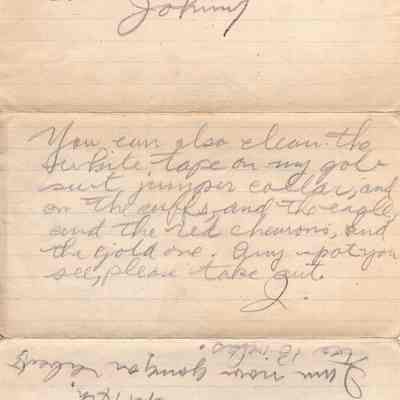 Johnny
You can also clean the
white tape on my gob
suit, jumper collar, and
on the cuffs, and the eagle,
and the red chevrons, and
the gold one. Any spot you
see, please take out.
J.
I am now going on liberty